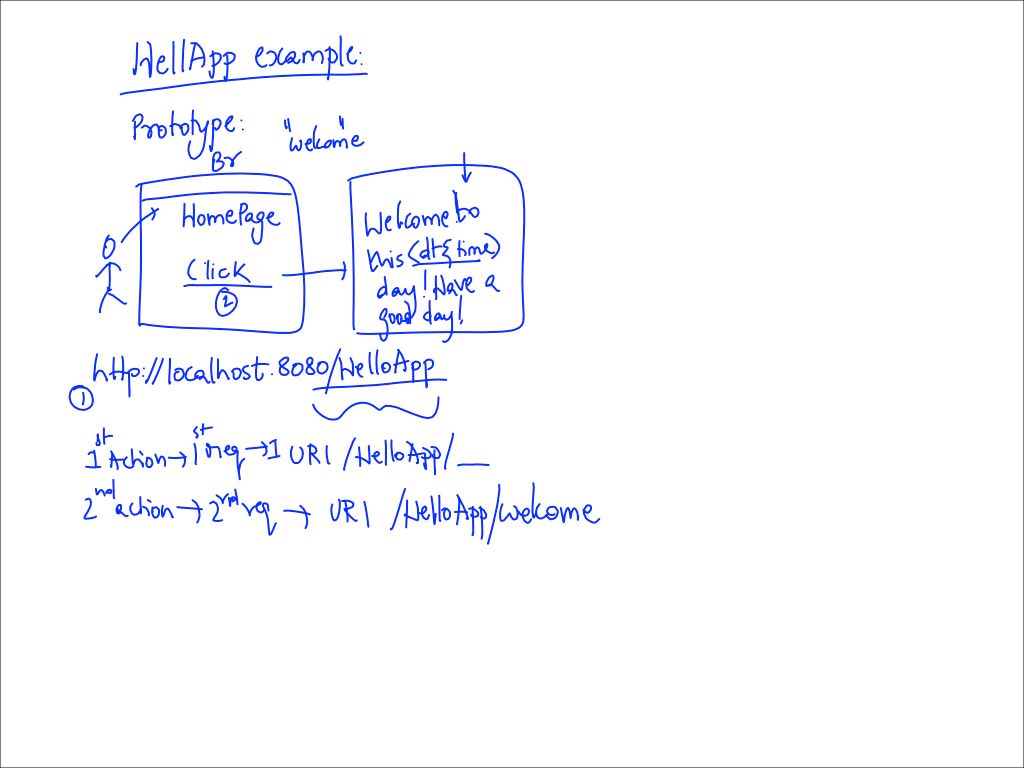 HellApp example:
Prototype:
"welcome"
Br
HomePage
Click
2
Welcome to
this (dt & time)
day! Have a
good day!
http://localhost:8080/HelloApp
1
1st Action → 1st req → 1 URI /HelloApp/__
2nd action → 2nd req → URI /HelloApp/welcome